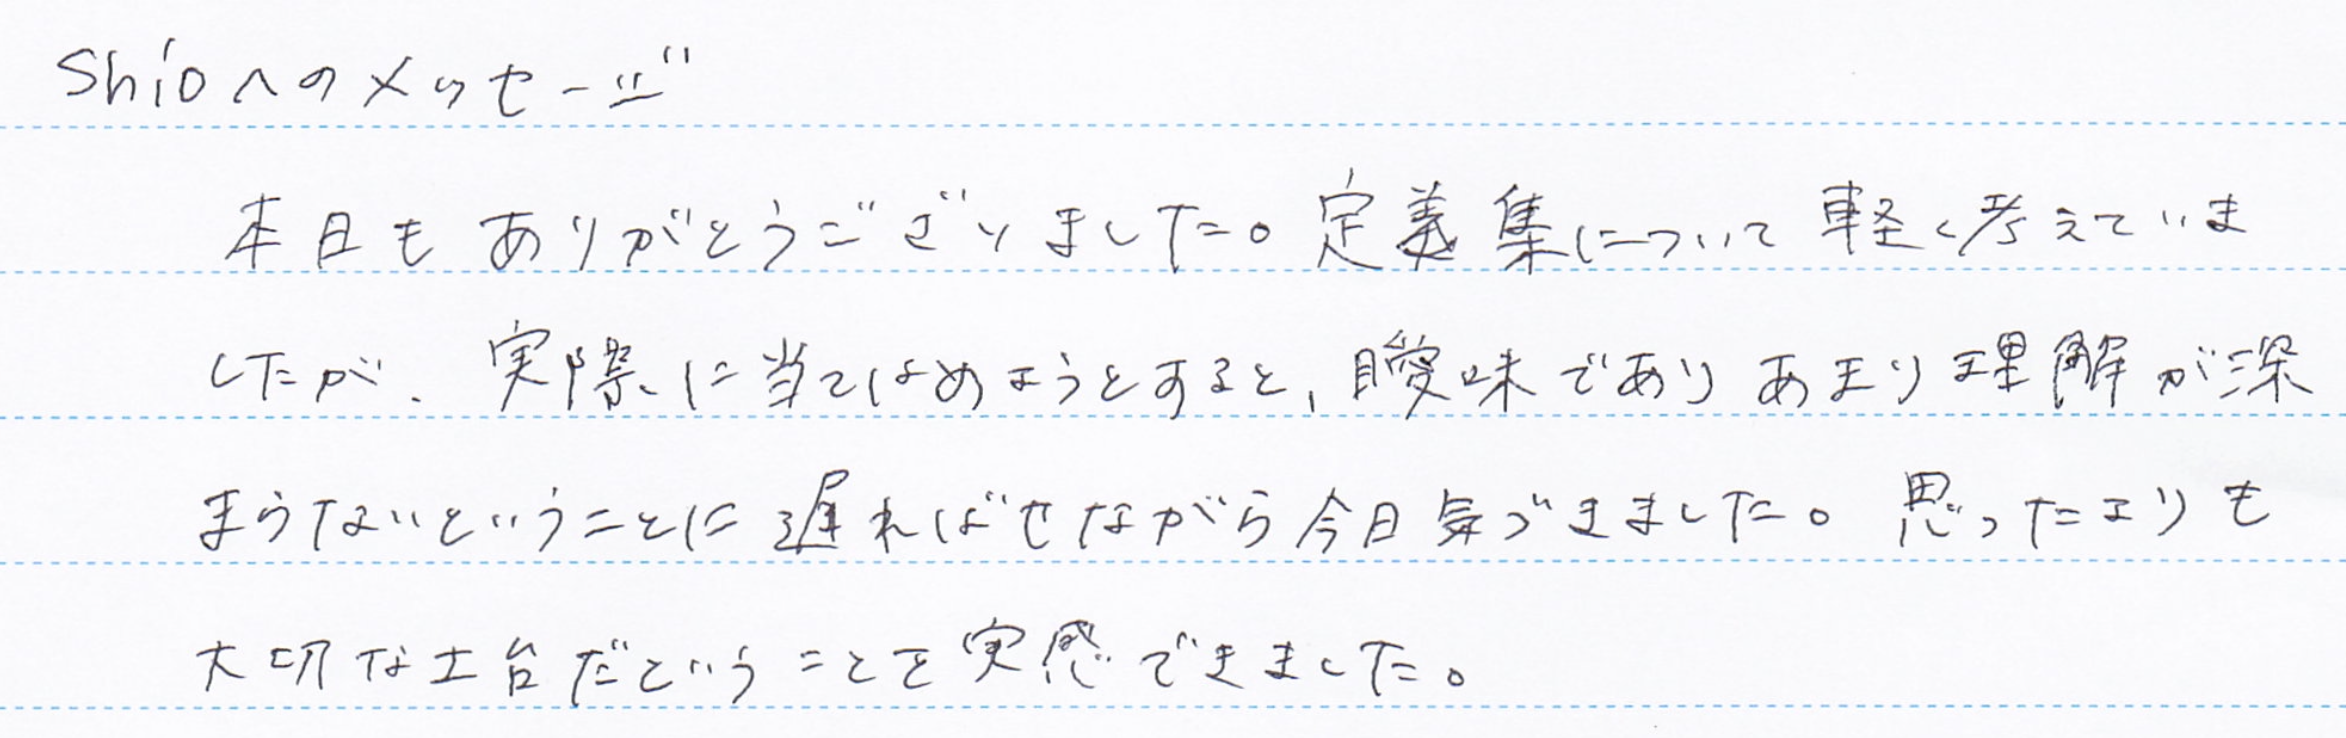 Shioへのメッセージ
本日もありがとうございました。定義集について軽く考えていま
したが、実際に当てはめようとすると、曖味でありあまり理解が深
まらないということに遅ればせながら今日気づきました。思ったよりも
大切な土台だということを実感できました。